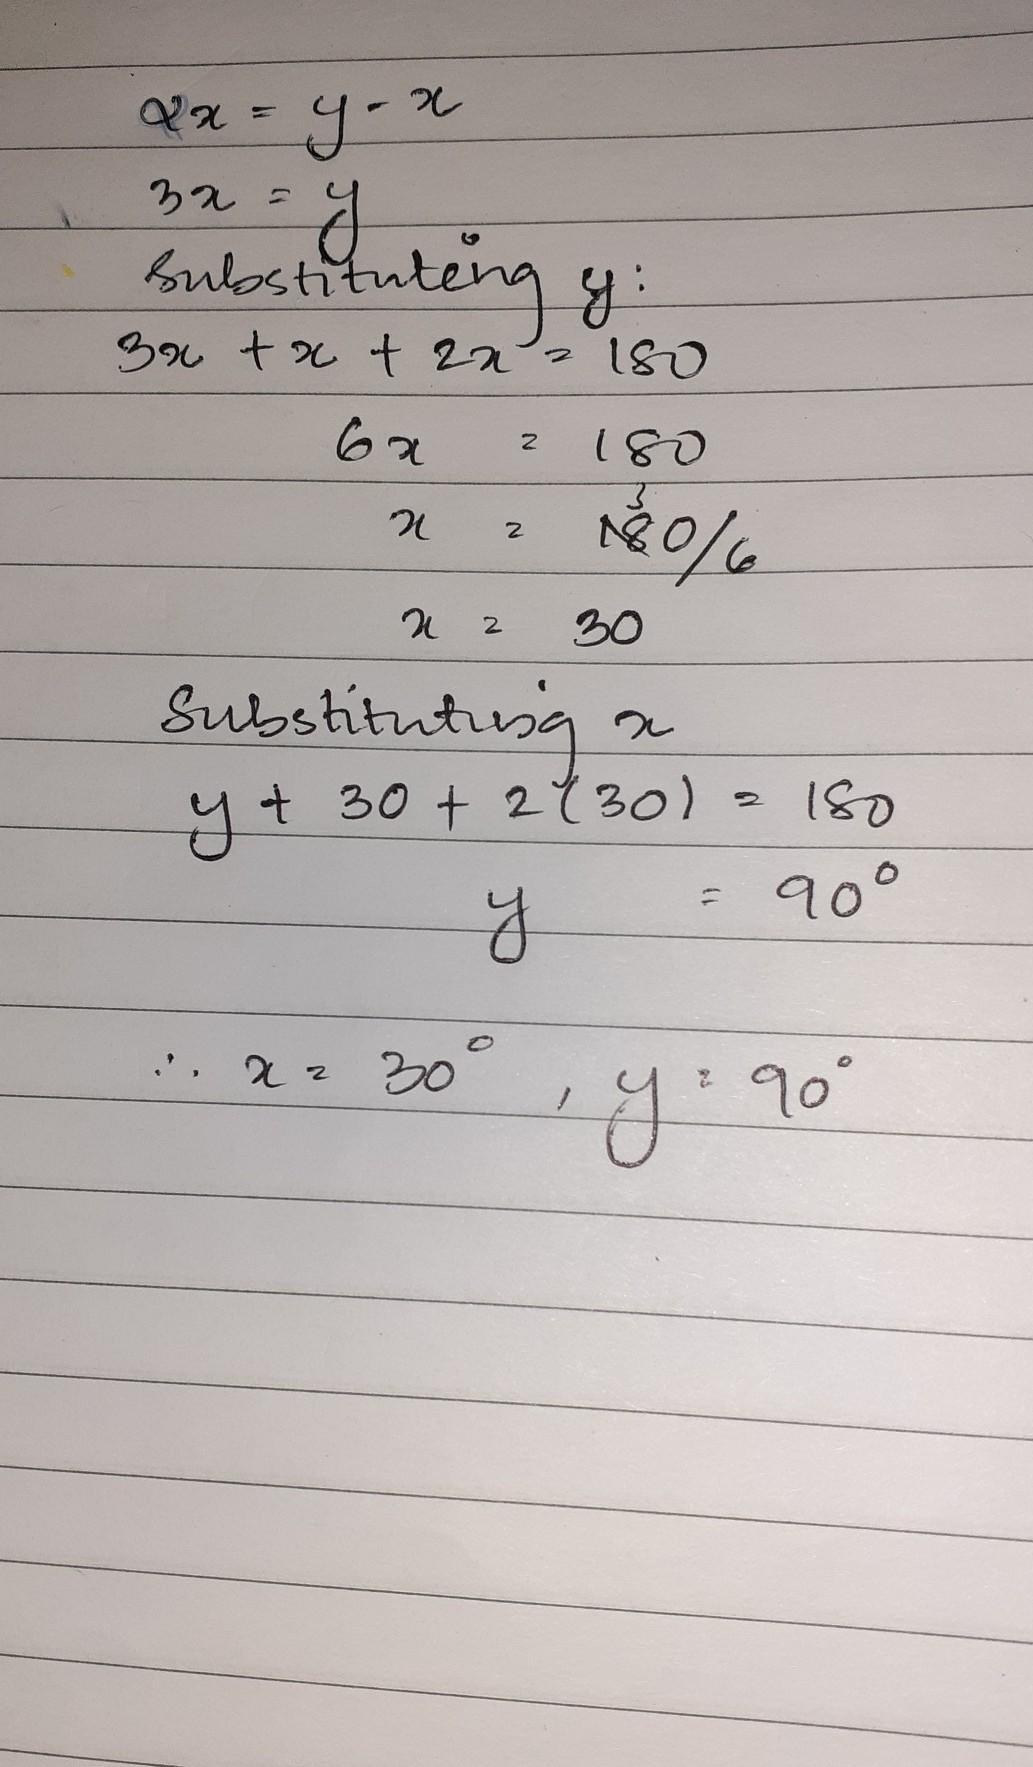 2x = y - x
3x = y
Substituting y:
3x + x + 2x = 180
6x = 180
3
x = 180/6
x = 30
Substituting x
y + 30 + 2(30) = 180
y = 90°
∴ x = 30°, y = 90°